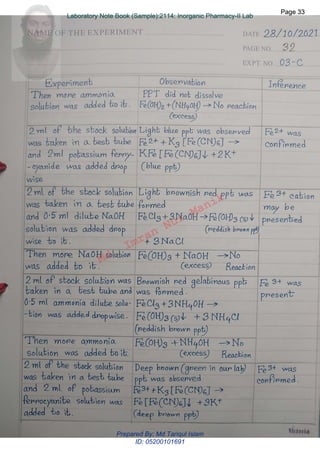 Page 33
Laboratory Note Book (Sample):2114: Inorganic Pharmacy-II Lab
NAME OF THE EXPERIMENT
DATE 28/10/2021
PAGE NO. 32
EXPT NO. 03-C
Experiment
Observation
Inference
Then more ammonia
solution was added to it.
PPT did not dissolve
Fe(OH)2 + (NH4OH) → No reaction
(excess)
2 ml of the stock solution
was taken in a test tube
and 2ml potassium ferry-
-cyanide was added drop
wise
Light blue ppt was observed
Fe2+ + K3 [Fe(CN)6] →
KFe [Fe(CN)6]↓ + 2K+
(blue ppt)
Fe2+ was
confirmed
2 ml of the stock solution
was taken in a test tube
and 0.5 ml dilute NaOH
solution was added drop
wise to it.
Light brownish red ppt was
formed
FeCl3 + 3NaOH → Fe(OH)3 (s)↓
(reddish brown ppt)
+ 3NaCl
Fe3+ cation
may be
presented
Then more NaOH solution
was added to it.
Fe(OH)3 + NaOH → No
(excess) Reaction
2 ml of stock solution was
taken in a test tube and
0.5 ml ammonia dilute solu-
-tion was added dropwise.
Brownish red gelatinous ppt
was formed
FeCl3 + 3NH4OH →
Fe(OH)3(s)↓ + 3NH4Cl
(reddish brown ppt)
Fe 3+ was
present
Then more ammonia
solution was added to it.
Fe(OH)3 + NH4OH → No
(excess) Reaction
2 ml of the stock solution
was taken in a test tube
and 2 ml of potassium
ferrocyanite solution was
added to it.
Deep brown (green in our lab)
ppt was observed
Fe3+ + K3 [Fe(CN)6] →
Fe [Fe(CN)6]↓ + 3K+
(deep brown ppt)
Fe3+ was
confirmed.
Imran Nur Manik
Prepared By: Md.Tariqul Islam
ID: 05200101691